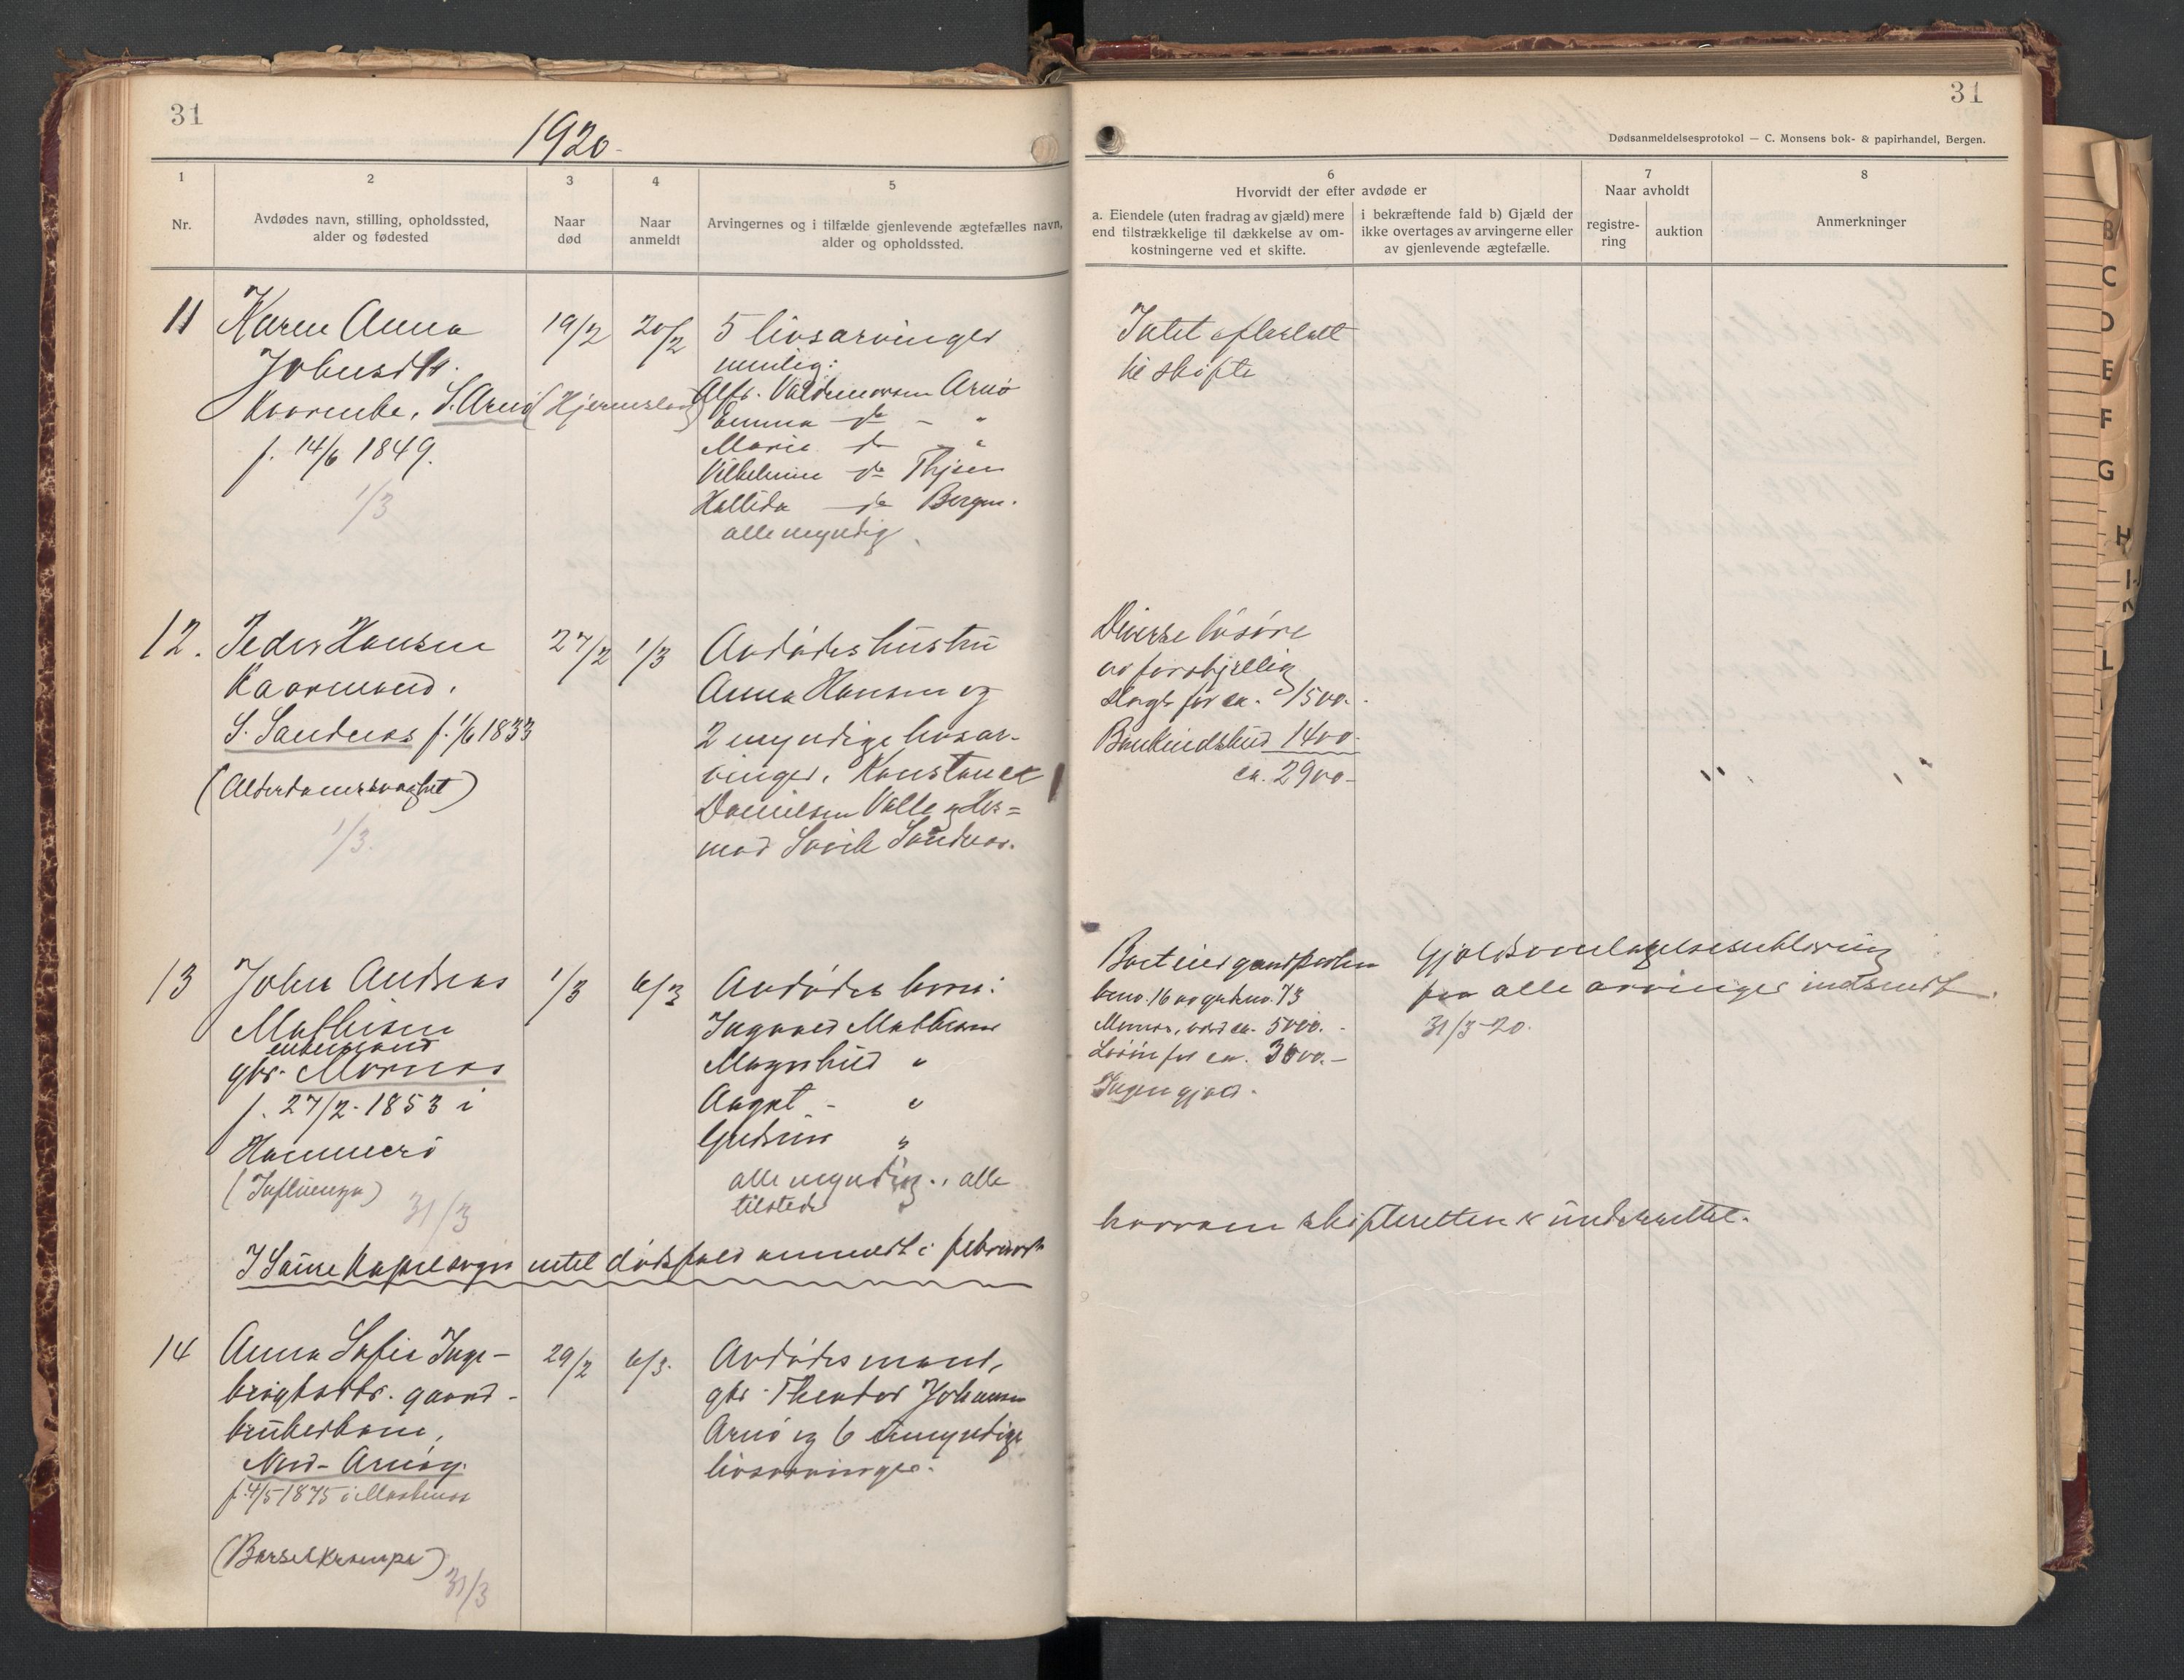 31
1920.
1
2
3
4
5
Nr.
Avdødes navn, stilling, opholdssted,
alder og fødested
Naar
død
Naar
anmeldt
Arvingernes og i tilfælde gjenlevende ægtefælles navn,
alder og opholdssted.
31
Dødsanmeldelsesprotokol — C. Monsens bok- & papirhandel, Bergen.
6
Hvorvidt der efter avdøde er
a. Eiendele (uten fradrag av gjæld) mere
end tilstrækkelige til dækkelse av om-
kostningerne ved et skifte.
i bekræftende fald b) Gjæld der
ikke overtages av arvingerne eller
av gjenlevende ægtefælle.
7
Naar avholdt
registre-
ring
auktion
8
Anmerkninger
11
Karen Anna
Johnsdtr.
S. Arnö
f. 14/6 1849.
1/3
19/2
20/2
5 livsarvinger
nemlig:
Alfr. Valdemarsen Arnö
Emma do - "
Marie do - "
Vilhelmine do
do Bergen.
alle myndig
Intet efterlatt
til skifte
12.
Peder Hansen
Kaarmand.
S. Sandnes f. 1/6 1833
(Alderdomssvaghet)
1/3.
27/2
1/3
Avdødes hustru
Anna Hansen og
2 myndige livsar-
vinger, Konstance
Danielsen Valle og Her=
mod Sandnes.
Diverse løsøre
av forskjellig
slags for ca. 1500.-
Bankindskud 1400-
ca. 2900-
13
Johan Andreas
Mathisen
enkemand
gbr. Mornes
f. 27/2-1853 i
Hammerö
(Influenza)
31/3
1/3
6/3
Avdødes børn:
Ingvald Mathisen
Magnhild "
August - "
Gudrun "
alle myndig, alle
tilstede
bno. 16 av gardsno. 73
Mornes, værd ca. 5000.-
Løsøre for ca. 3000.-
Ingen gjæld.
Gjældsovertagelseserklæring
fra alle arvinger indsendt
31/3-20.
I Saura kapelsogn intet dødsfald anmeldt i februar
hvorom skifteretten er underrettet.
14
Anna Sofie Inge-
brigtsdtr. gaard-
brukerkone,
Nord-Arnöy.
f. 4/5 1875 i
(Barselkrampe)
31/3
29/2
6/3.
Avdødes mand,
gbr. Theodor Johansen
Arnö og 6 umyndige
livsarvinger.
B
C
D
E
F
G
H
I-J
K
L